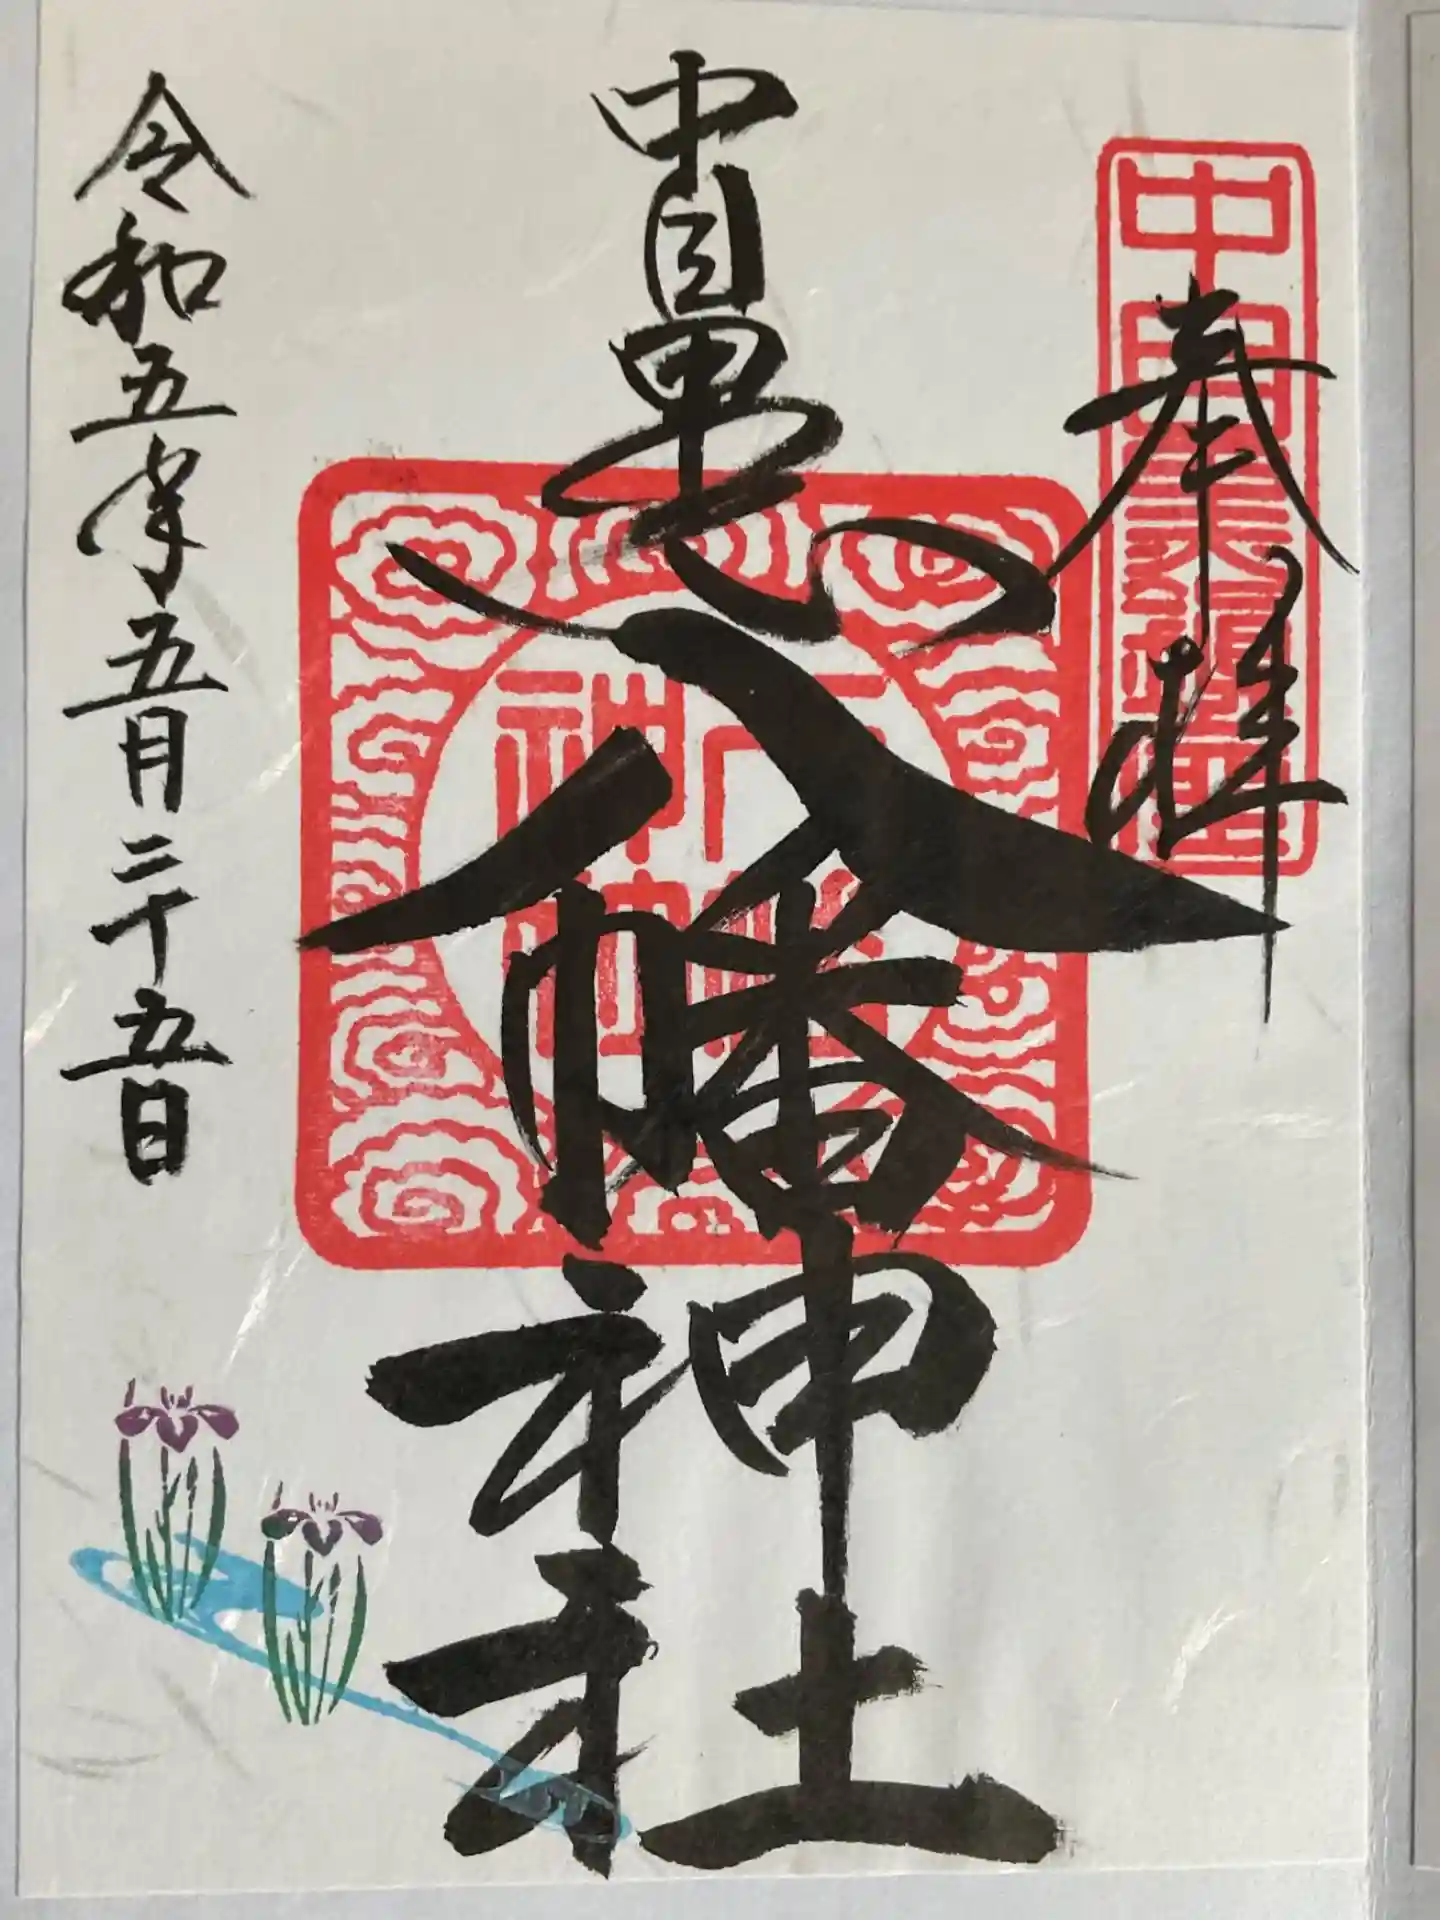 奉拝
中目黒八幡神社
令和五年五月二十五日